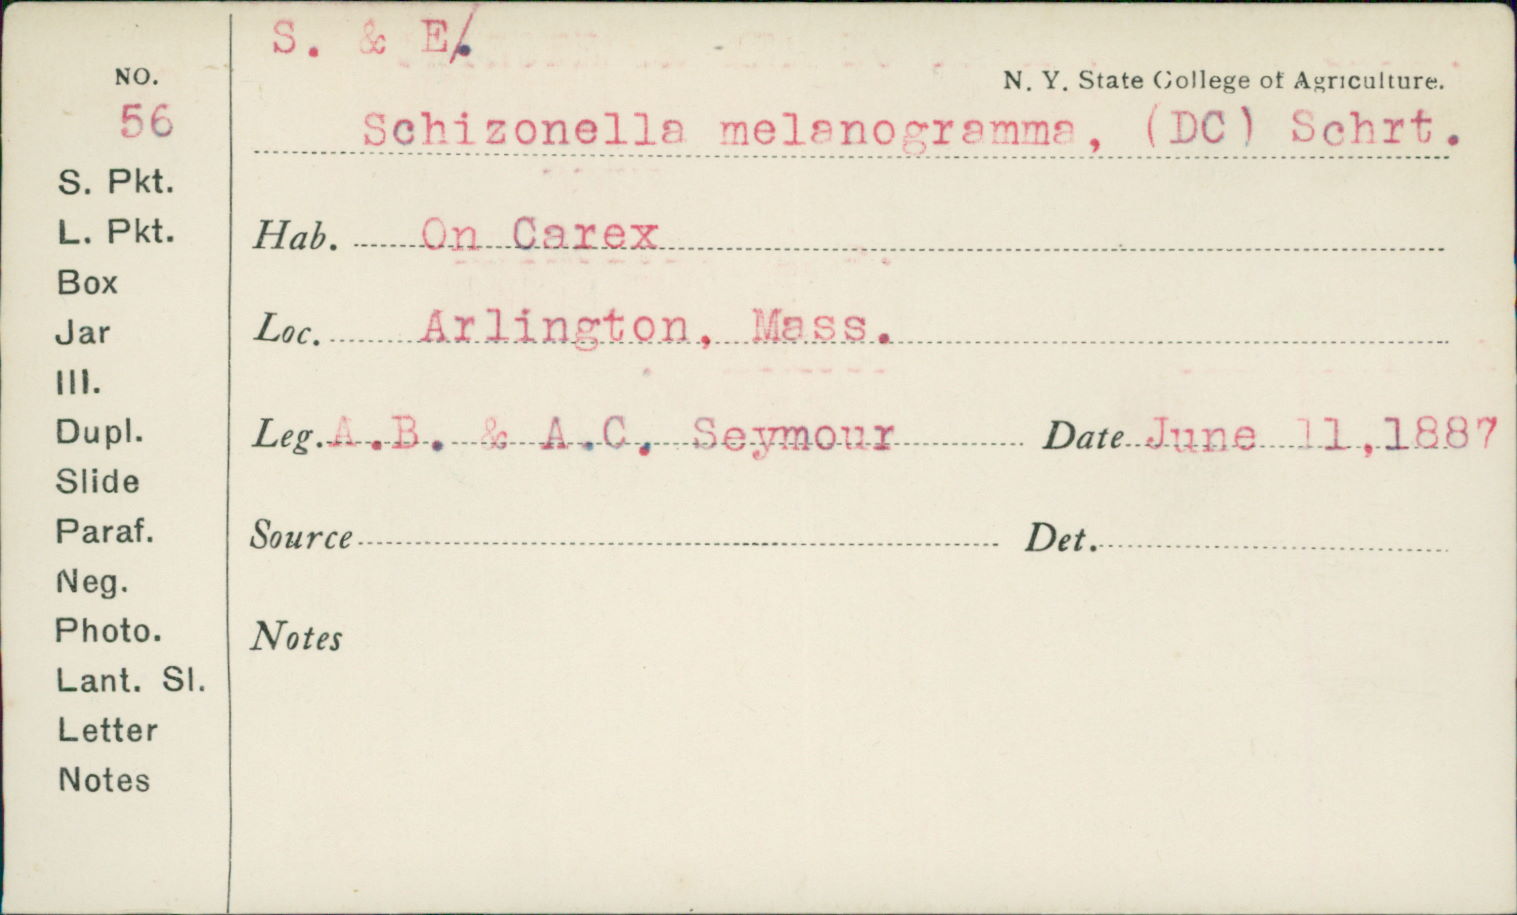 S. & E/.
N. Y. State College of Agriculture.
NO.
56
Schizonella melanogramma, (DC) Schrt.
S. Pkt.
L. Pkt.
Box
Jar
Ill.
Dupl.
Slide
Paraf.
Neg.
Photo.
Lant. Sl.
Letter
Notes
Hab. On Carex
Loc. Arlington, Mass.
Leg. A.B. & A.C. Seymour Date June 11,1887
Source Det.
Notes